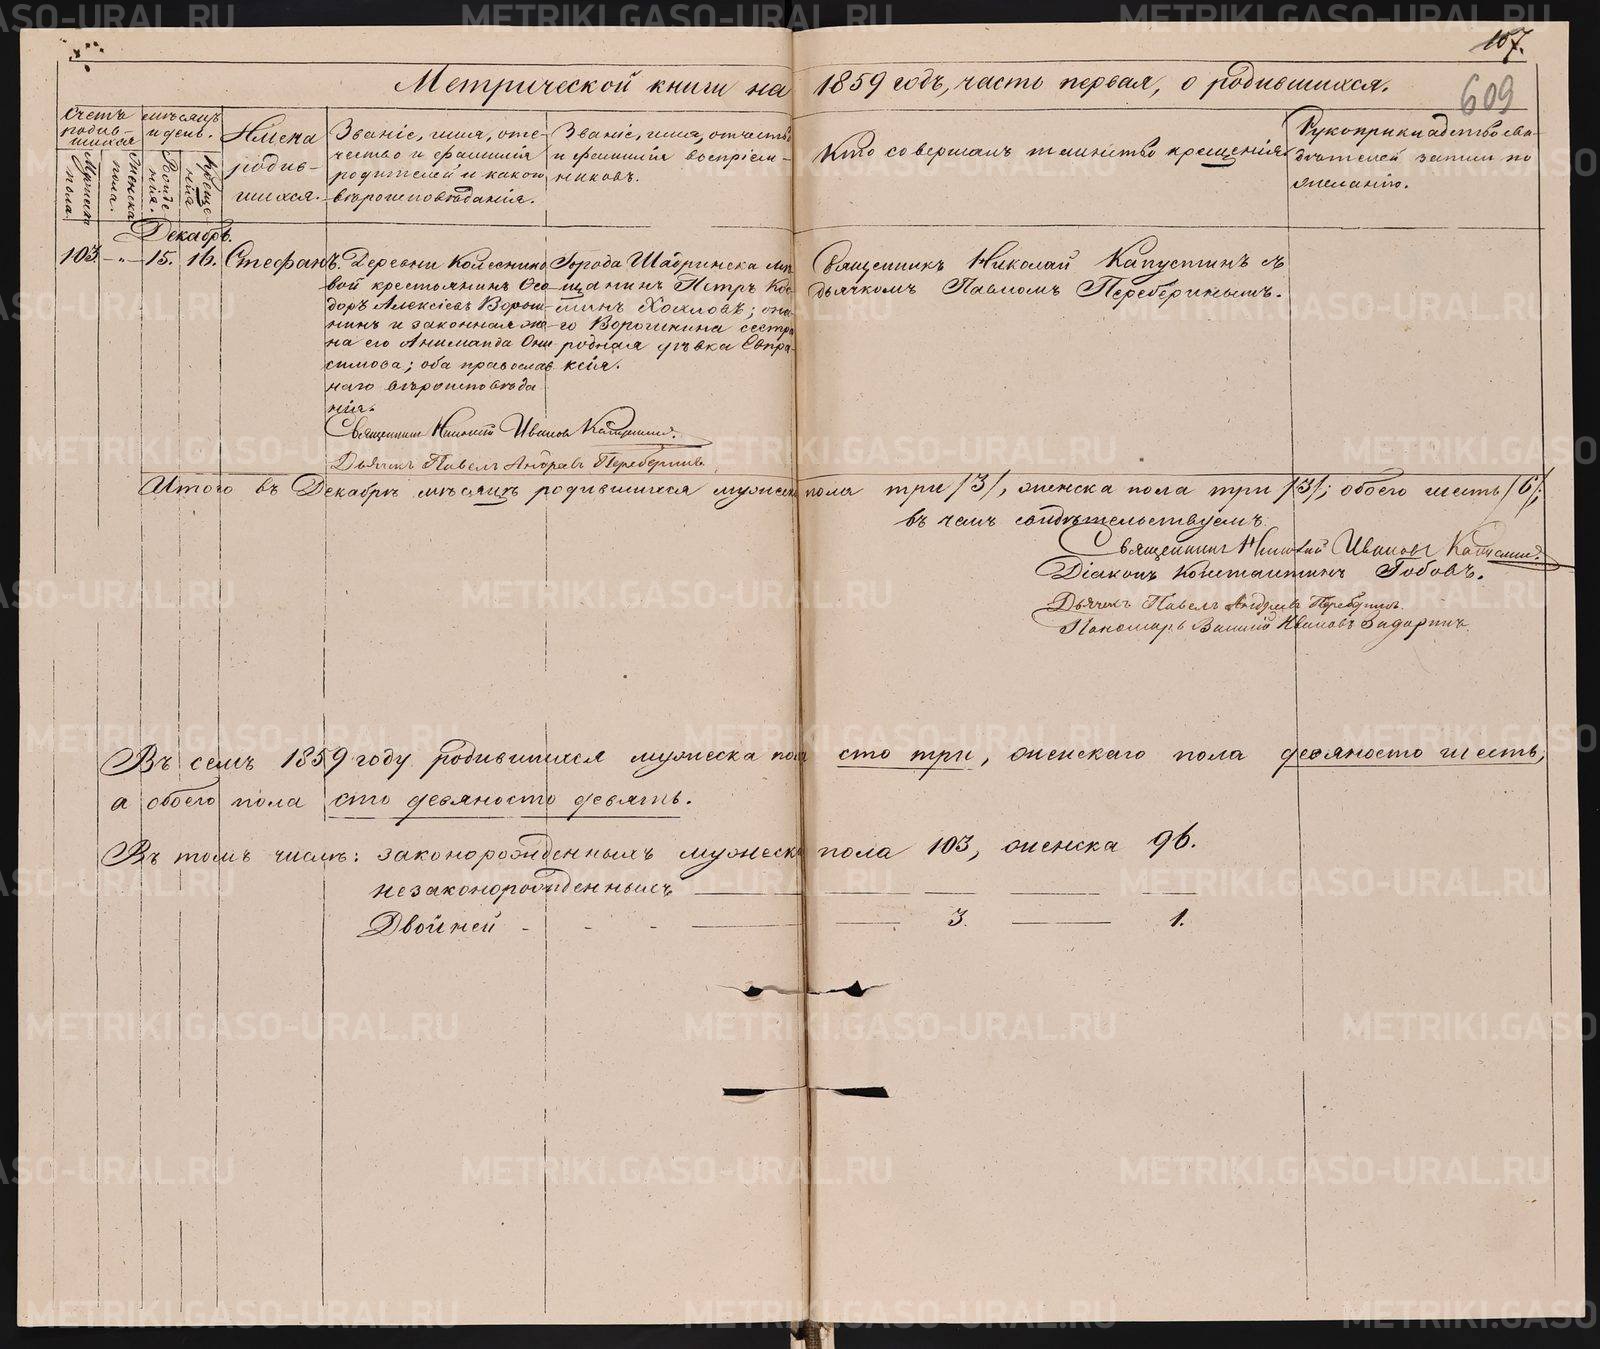 107.
609
Метрической книги на 1859 годъ, часть первая, о родившихся.
Счетъ родив-шихся
Мужска пола
Женска пола.
мѣсяцъ и день.
Рожденія.
Крещенія
Имена родив-шихся.
Званіе, имя, оте-
чество и фамилія
родителей и какого
вѣроисповѣданія.
Званіе, имя, отчество
и фамилія воспріем-
никовъ.
Кто совершалъ таинство крещенія.
Рукоприкладство сви-
дѣтелей записи по
желанію.
Декабрь.
103. - „ - 15. 16. Стефанъ.
Деревни Колеснико
вой крестьянинъ Ѳео
доръ Алексѣевъ Ворош-
нинъ и законная же-
на его Ани
симова; оба православ
наго вѣроисповѣда
нія.
Города Шадринска мѣ
щанинъ Петръ
Хохловъ; она-
го Ворошнина сестра
родная дѣвка Евпра-
ксія.
Священникъ Николай Капустинъ съ
дьячкомъ Павломъ Переберинымъ.
Священникъ Николай Ивановъ Капустинъ.
Дьячекъ Павелъ Андреевъ Переберинъ.
Итого въ Декабрѣ мѣсяцѣ родившихся мужеска пола три /3/, женска пола три /3/; обоего шесть /6/;
въ чемъ свидѣтельствуемъ:
Священникъ Николай Ивановъ Капустинъ.
Діаконъ Константинъ Бобовъ.
Дьячекъ Павелъ Андреевъ Переберинъ.
Пономарь Василій Ивановъ Задоринъ.
Въ семъ 1859 году родившихся мужеска пола сто три, женскаго пола девяносто шесть,
а обоего пола сто девяносто девять.
Въ томъ числѣ: законорожденныхъ мужеска пола 103, женска 96.
незаконорожденныхъ
Двойней - - - 3. 1.
METRIKI.GASO-URAL.RU